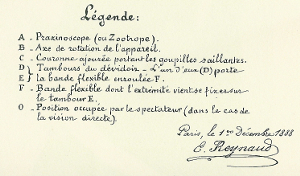 Légende:
A - Praxinoscope (ou Zootrope).
B - Axe de rotation de l'appareil.
C - Couronne ajourée portant les goupilles saillantes.
D } Tambours du dévidoir - L'un d'eux (D) porte
E } la bande flexible enroulée F.
F - Bande flexible dont l'extrémité vient se fixer sur
le tambour E.
O - Position occupée par le spectateur (dans le cas de
la vision directe).
Paris, le 1er Décembre 1888
E. Reynaud